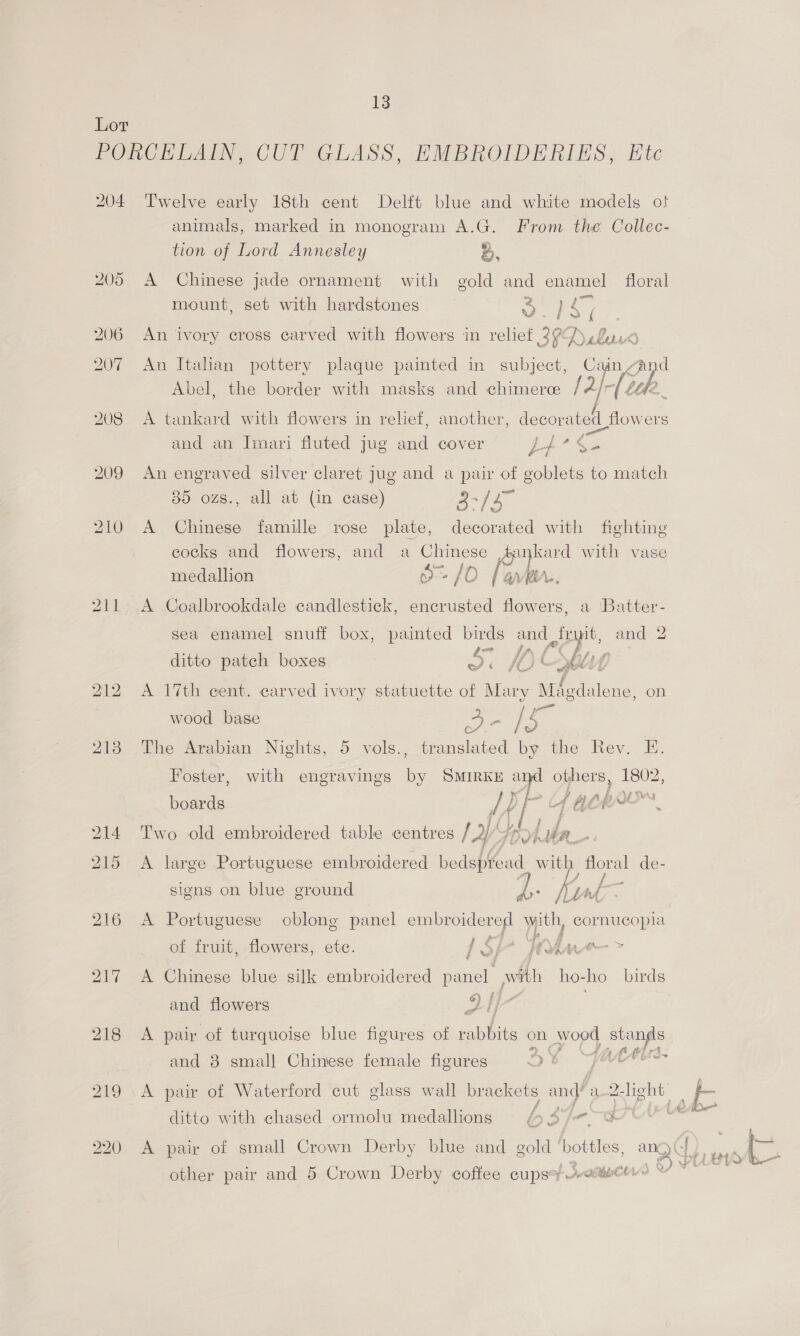 13
Lot
PORCELAIN, CUT GLASS, EMBROIDERIES, Etc
204 Twelve early 18th cent Delft blue and white models of
animals, marked in monogram A.G. From the Collec-
tion of Lord Annesley
205 A Chinese jade ornament with gold and enamel floral
mount, set with hardstones 3.15
206 An ivory cross carved with flowers in relief
207 An Italian pottery plaque painted in subject, Cain and
Abel, the border with masks and chimeræ
208 A tankard with flowers in relief, another, decorated flowers
and an Imari fluted jug and cover
209 An engraved silver claret jug and a pair of goblets to match
35 ozs., all at (in case) 3-15
210 A Chinese famille rose plate, decorated with fighting
cocks and flowers, and a Chinese tankard with vase
medallion 5-10
211 A Coalbrookdale candlestick, encrusted flowers, a Batter-
sea enamel snuff box, painted birds and fruit, and 2
ditto patch boxes 5. 10
212 A 17th cent. carved ivory statuette of Mary Magdalene, on
wood base 3-15
213 The Arabian Nights, 5 vols., translated by the Rev. E.
Foster, with engravings by SMIRKE and others, 1802,
boards
214 Two old embroidered table centres
215 A large Portuguese embroidered bedspread with floral de-
signs on blue ground
216 A Portuguese oblong panel embroidered with cornucopia
of fruit, flowers, etc.
217 A Chinese blue silk embroidered panel with ho-ho birds
and flowers
218 A pair of turquoise blue figures of rabbits on wood stands
and 3 small Chinese female figures
219 A pair of Waterford cut glass wall brackets and a 2-light
ditto with chased ormolu medallions
220 A pair of small Crown Derby blue and gold bottles, an-
other pair and 5 Crown Derby coffee cups